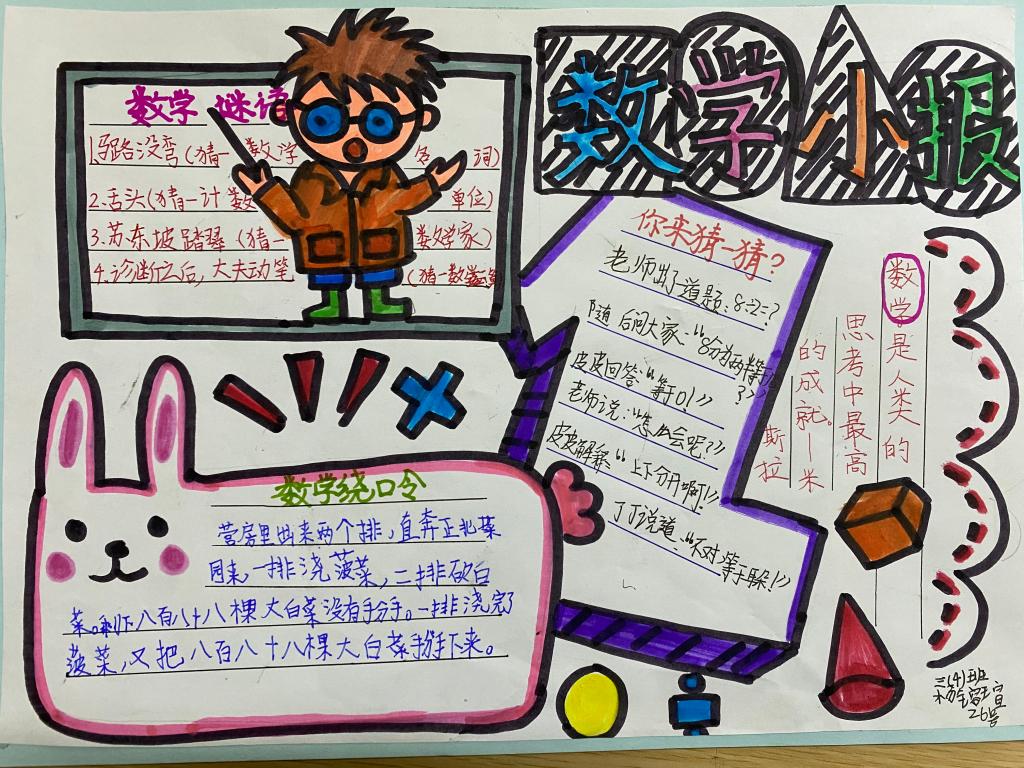 数学小报
数学 谜语
1.马路没弯(猜一数学名词)
2.舌头(猜一计数单位)
3.苏东坡踏琴(猜一数学家)
4.诊断以后,大夫动笔(猜一数学
你来猜一猜?
老师出了道题:8÷2=?
随后问大家:“8分为两等
?”
皮皮回答:“等于0!”
老师说:“怎么会呢?”
皮皮解释:“上下分开啊!”
丁丁说道:“不对,等于
数学是人类的
思考中最高
的成就。—米
斯拉
数学绕口令
营房里出来两个排,直奔正北菜
园来,一排浇菠菜,二排砍白
菜。剩下八百八十八棵大白菜没有
一排浇完了
菠菜,又把八百八十八棵大白菜
下来。
三(4)班
26号